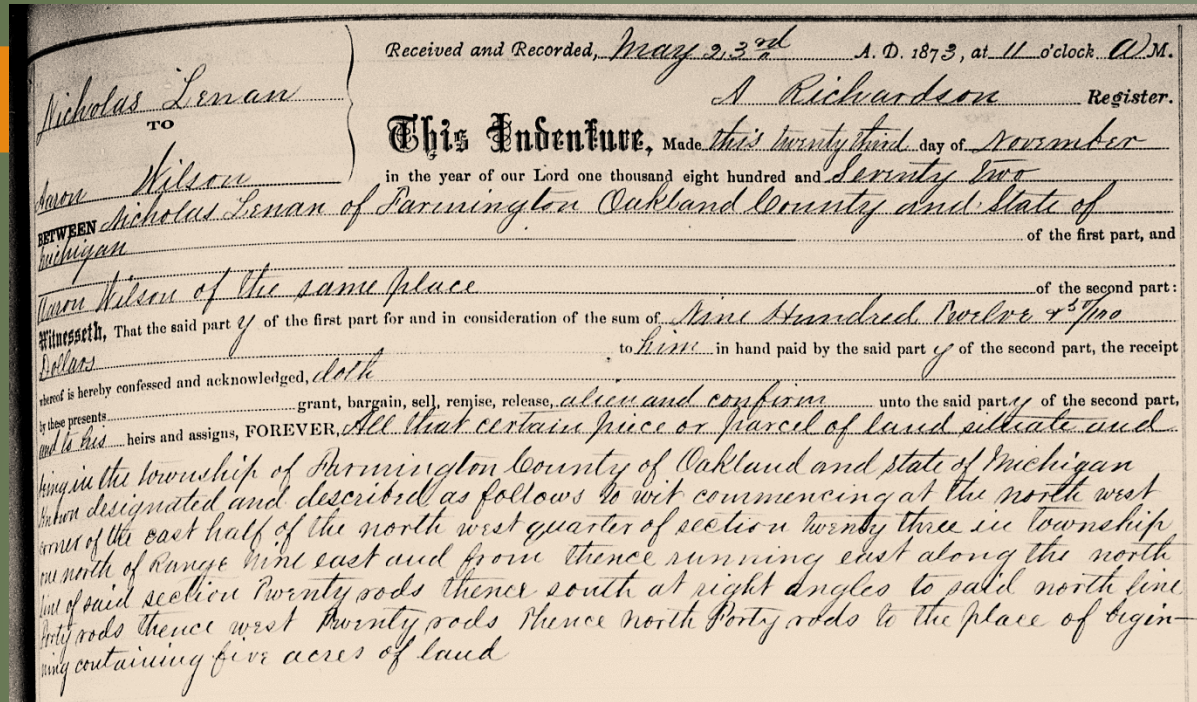 Received and Recorded, May 23rd A. D. 1873, at 11 o'clock A M.
Nicholas Lenan
A Richardson Register.
TO
This Indenture, Made this twenty third day of November
Aaron Wilson
in the year of our Lord one thousand eight hundred and Seventy Two
BETWEEN Nicholas Lenan of Farmington Oakland County and State of
Michigan of the first part, and
Aaron Wilson of the same place of the second part:
Witnesseth, That the said party of the first part for and in consideration of the sum of Nine Hundred Twelve & 50/100
Dollars to him in hand paid by the said party of the second part, the receipt
whereof is hereby confessed and acknowledged, doth
by these presents grant, bargain, sell, remise, release, alien and confirm unto the said party of the second part,
and to his heirs and assigns, FOREVER, All that certain piece or parcel of land situate and
being in the township of Farmington County of Oakland and state of Michigan
known designated and described as follows to wit commencing at the north west
corner of the east half of the north west quarter of section twenty three in township
one north of Range Nine east and from thence running east along the north
line of said section Twenty rods thence south at right angles to said north line
Forty rods thence west Twenty rods Thence north Forty rods to the place of begin-
ning containing five acres of land